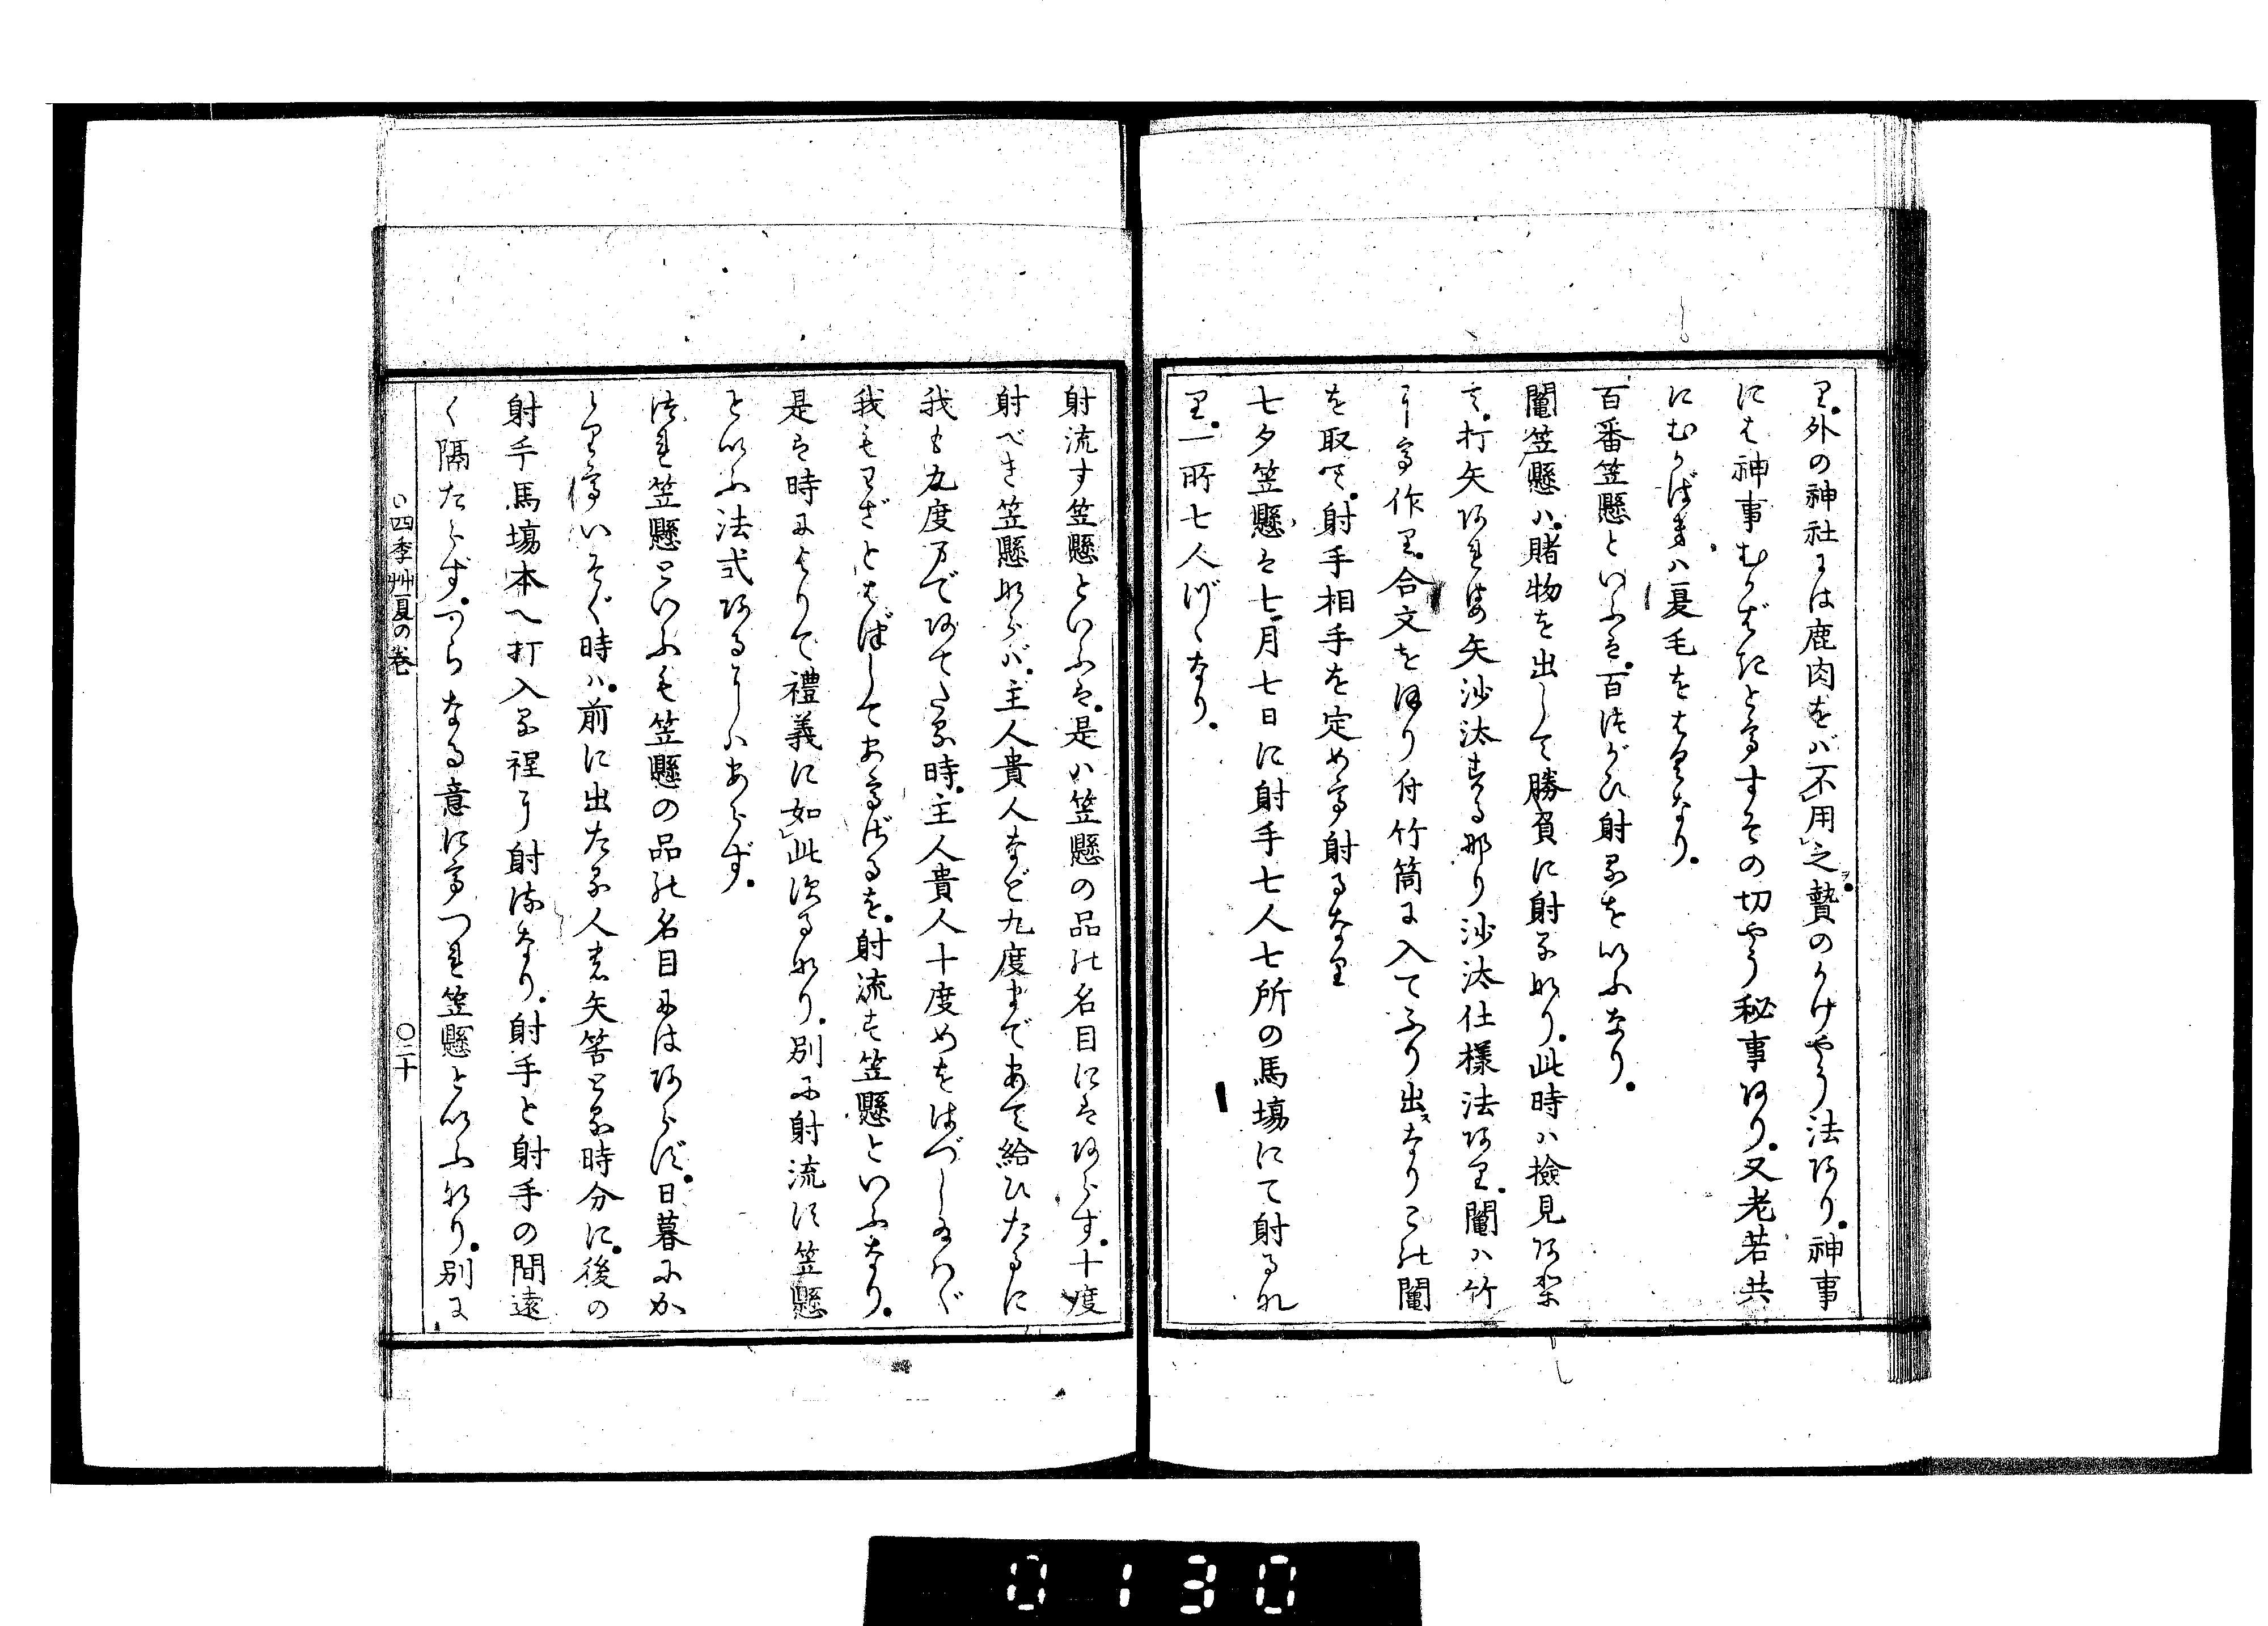 り。外の神社には鹿肉をバ不用之。贄のかけやう法あり。神事
にも神事むかばきとてすその切やう秘事あり。又老若共
にむかばきハ夏毛をはくなり。
百番笠懸といふハ。百つがひ射るをいふなり。
鬮笠懸ハ。賭物を出して勝負に射るなり。此時ハ撿見あり
て。打矢あれば矢沙汰する那り沙汰仕様法あり。鬮ハ竹
にて作り。合文をほり付竹筒に入てふり出スなりこの鬮
を取て。射手相手を定めて射るなり
七夕笠懸ハ七月七日に射手七人七所の馬塲にて射るな
り。一所七人づゝなり。
射流す笠懸といふハ。是ハ笠懸の品の名目にハあらす。十度
射べき笠懸ならバ。主人貴人など九度まであて給ひたるに
我も九度まであてたる時。主人貴人十度めをはづし給ハゞ
我もわざとはづしてあてざるを。射流す笠懸といふなり。
是ハ時によりて禮義に如此するなり。別に射流す笠懸
といふ法式あるにハあらず。
つれ笠懸といふも笠懸の品の名目にはあらず。日暮にか
ゝりていそぐ時ハ。前に出たる人も矢筈とる時分に。後の
射手馬塲本へ打入る程に射るなり。射手と射手の間遠
く隔たらず。つらなる意にてつれ笠懸といふなり。別に
○四季艸夏の巻
○二十
0130